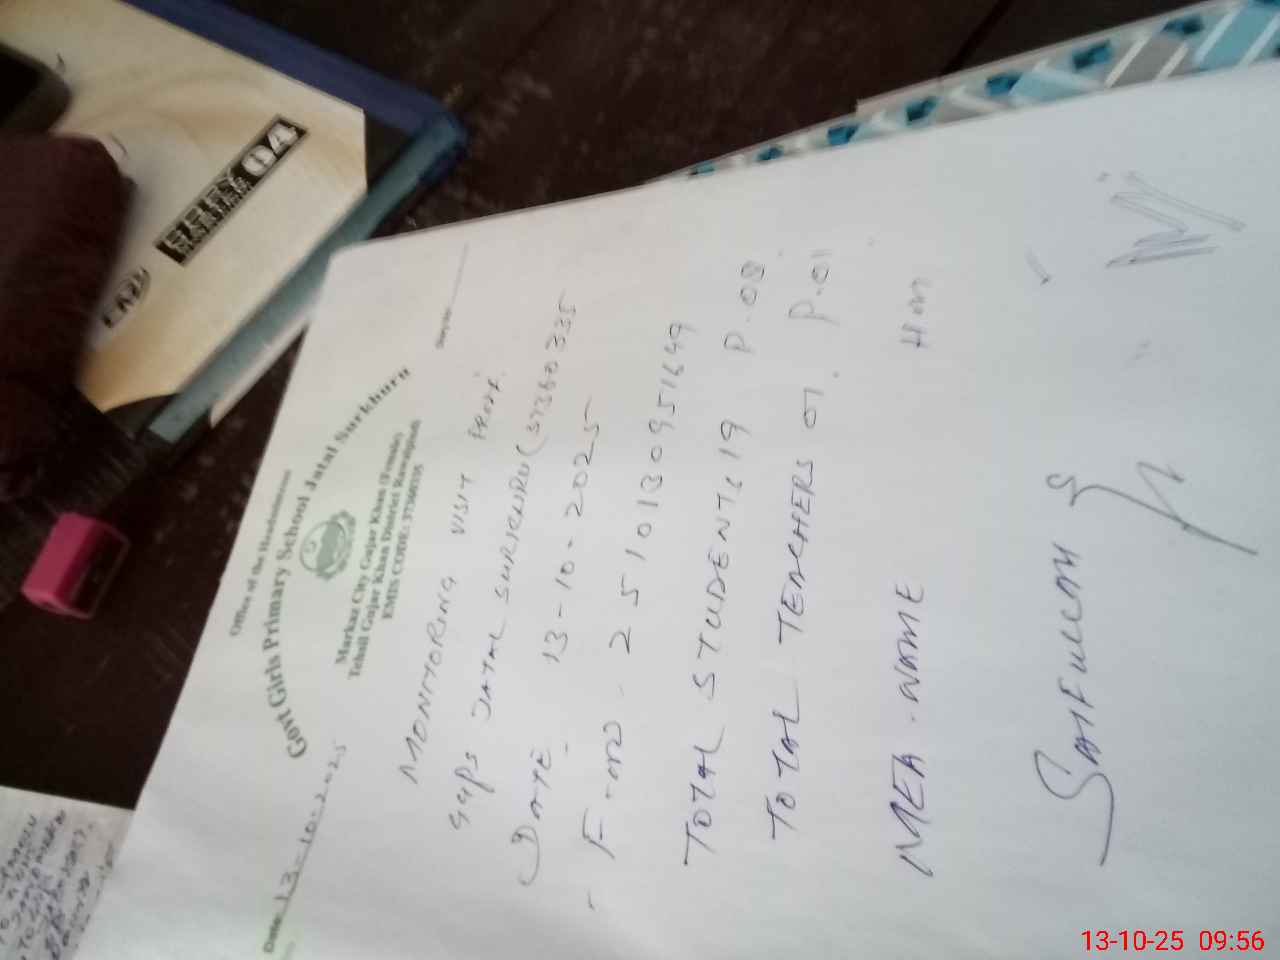 Office of the Headmistress
Govt Girls Primary School Jatal Surkhuru
Markaz City Gujar Khan (Female)
Tehsil Gujar Khan District Rawalpindi
EMIS CODE: 37360335
Date 13-10-2025
MONITORING VISIT PROOF
GGPS JATAL SURKHRU (37360335
DATE. 13-10-2025
F.NO. 2510130951649
TOTAL STUDENTS 19 P.08
TOTAL TEACHERS 01. P.01
MEA.NAME HM
SAIFULLAH
04
13-10-25 09:56